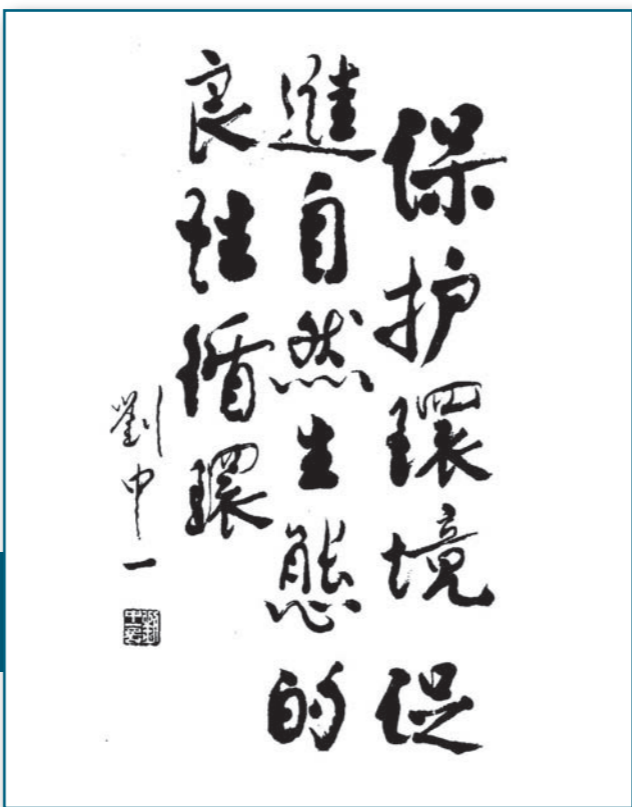 保护環境促
進自然生態的
良性循環
劉中一